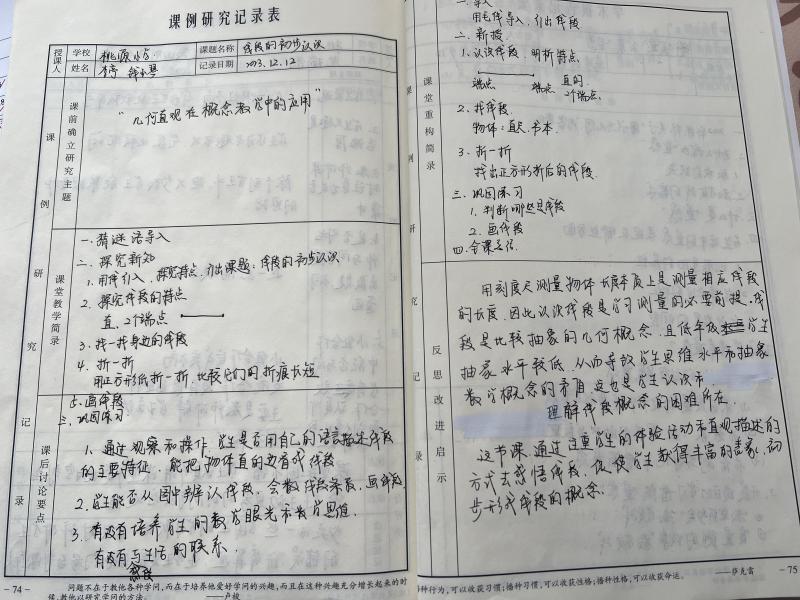 课例研究记录表
授课人
学校 桃源小学
课题名称 线段的初步认识
姓名
记录日期 2023.12.12
课例研究记录
课前确立研究主题
“几何直观在概念教学中的应用”
课堂教学简录
一. 猜谜语导入
二. 探究新知
1. 用线引入, 探究特点, 引出课题: 线段的初步认识
2. 探究线段的特点
直, 2个端点
3. 找一找身边的线段
4. 折一折
用正方形纸折一折, 比较它们的折痕长短
5. 画线段
三. 巩固练习:
课后讨论要点
1. 通过观察和操作, 学生是否用自己的语言描述线段
的主要特征, 能把物体直的边看成线段
2. 学生能否从图中辨认线段, 会数线段条数, 画线段
3. 有没有培养学生的数学眼光和数学思维
有没有与生活的联系.
- 74 -
问题不在于教他各种学问,而在于培养他爱好学问的兴趣,而且在这种兴趣充分增长起来的时
候,教他以研究学问的方法。 ——卢梭
课例研究记录
课堂重构简录
一. 导入
用毛线导入, 引出线段
二. 新授
1. 认识线段, 明晰特点
端点 端点 直的 2个端点
2. 找线段
物体: 直尺. 书本.
3. 折一折
找出正方形折后的线段
三. 巩固练习
1. 判断哪些是线段
2. 画线段
四. 全课总结
反思改进启示
用刻度尺测量物体长度本质上是测量相应线段
的长度. 因此认识线段是学习测量的必要前提. 线
段是比较抽象的几何概念, 且低年级学生
抽象水平较低, 从而导致学生思维水平和抽象
数学概念的矛盾. 这也是学生认识和
理解线段概念的困难所在.
这节课, 通过注重学生的体验活动和直观描述的
方式去感悟线段, 促使学生获得丰富的表象, 初
步形成线段的概念.
播种行为,可以收获习惯;播种习惯,可以收获性格;播种性格,可以收获命运。 ——萨克雷
- 75